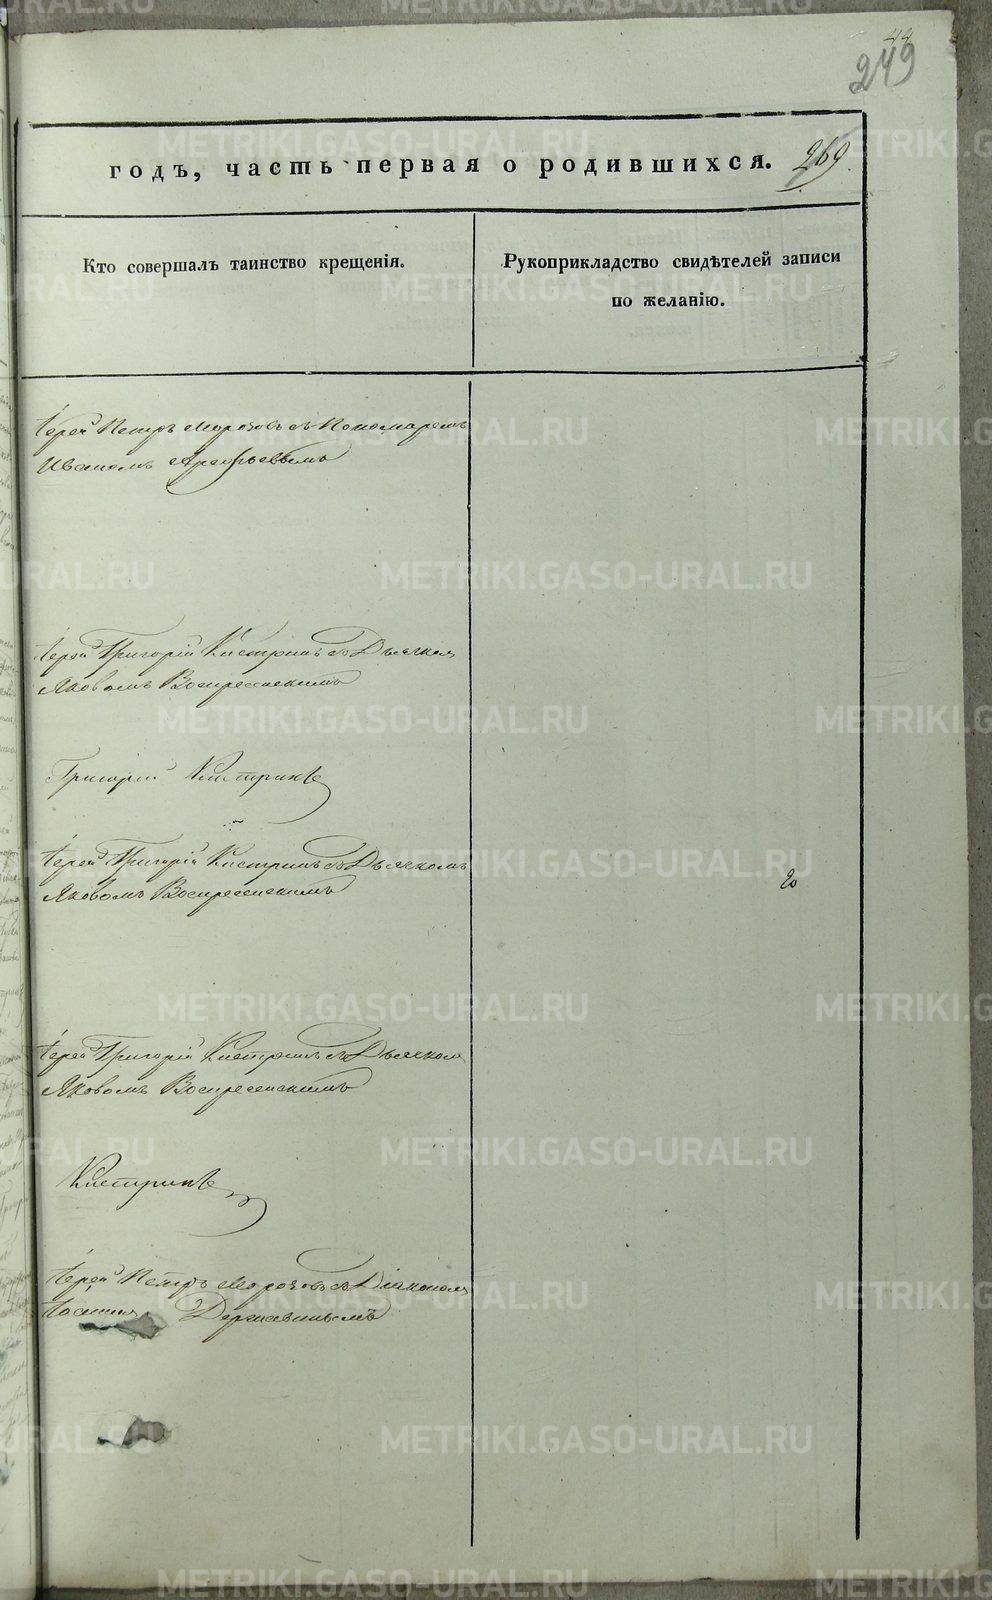 44
249
годъ, часть первая о родившихся. 269.
Кто совершалъ таинство крещенія.
Рукоприкладство свидѣтелей записи
по желанію.
Іерей Петръ Морозовъ съ Пономаремъ
Иваномъ Арефьевымъ
Іерей Григорій Кистринъ съ Дьячком
Яковомъ Воскресенскимъ
Григорій Кистринъ
Іерей Григорій Кистринъ съ Дьячкомъ
Яковомъ Воскресенскимъ
Іерей Григорій Кистринъ съ Дьячком
Яковомъ Воскресенскимъ
Кистринъ
Іерей Петръ Морозовъ съ Діакономъ
Державинымъ
METRIKI.GASO-URAL.RU